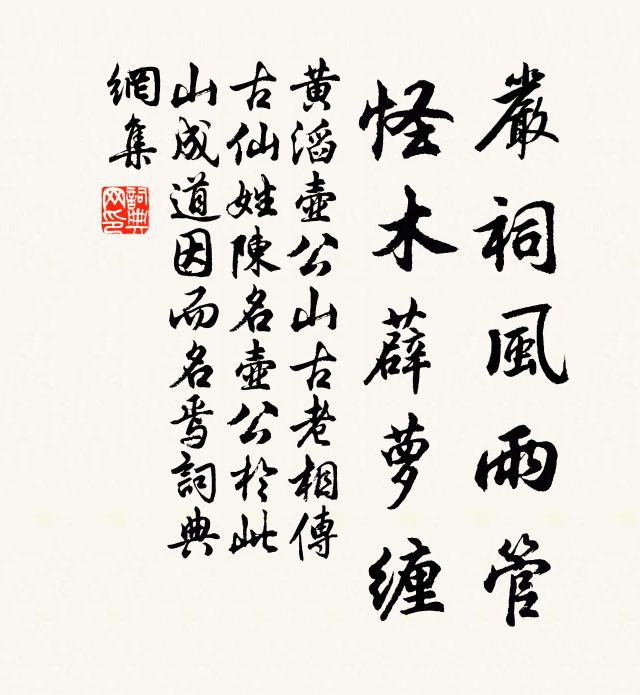 嚴祠風雨管
怪木薜蘿纏
黃滔壺公山古老相傳
古仙姓陳名壺公於此
山成道因而名焉詞典
網集
詞典
网印